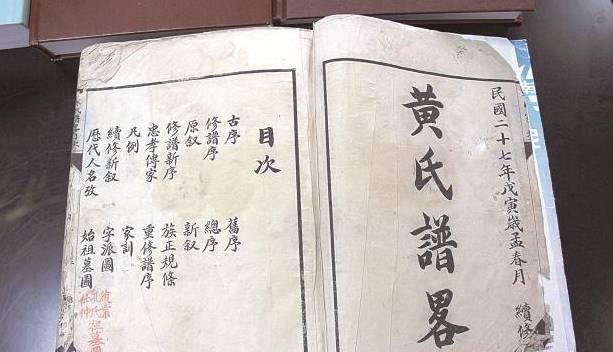 民國二十七年戊寅歲孟春月 續修
黃氏譜畧
目次
古序 舊序
修譜序 總序
原叙 新叙
修譜新序 族正規條
忠孝傳家 重修譜序
凡例 家訓
續修新叙 字派圖
歷代人名攷 始祖墓圖